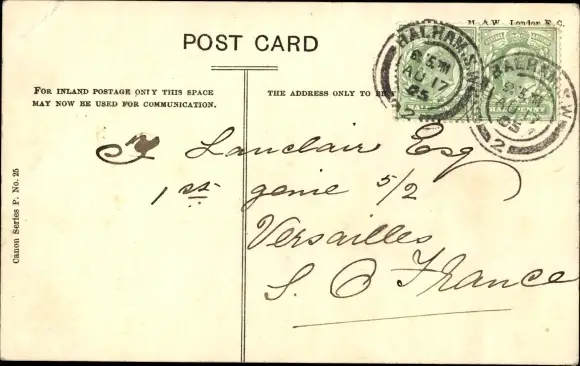 M. A. W. London E.C.
POST CARD
FOR INLAND POSTAGE ONLY THIS SPACE
MAY NOW BE USED FOR COMMUNICATION.
THE ADDRESS ONLY TO BE
BALHAM. S.W.
AU 17
05
2
BALHAM. S.W.
AU 17
05
2
HALFPENNY
Lanclair Esq
1 st genie 5/2
Versailles
S. O France
Canon Series P. No. 25